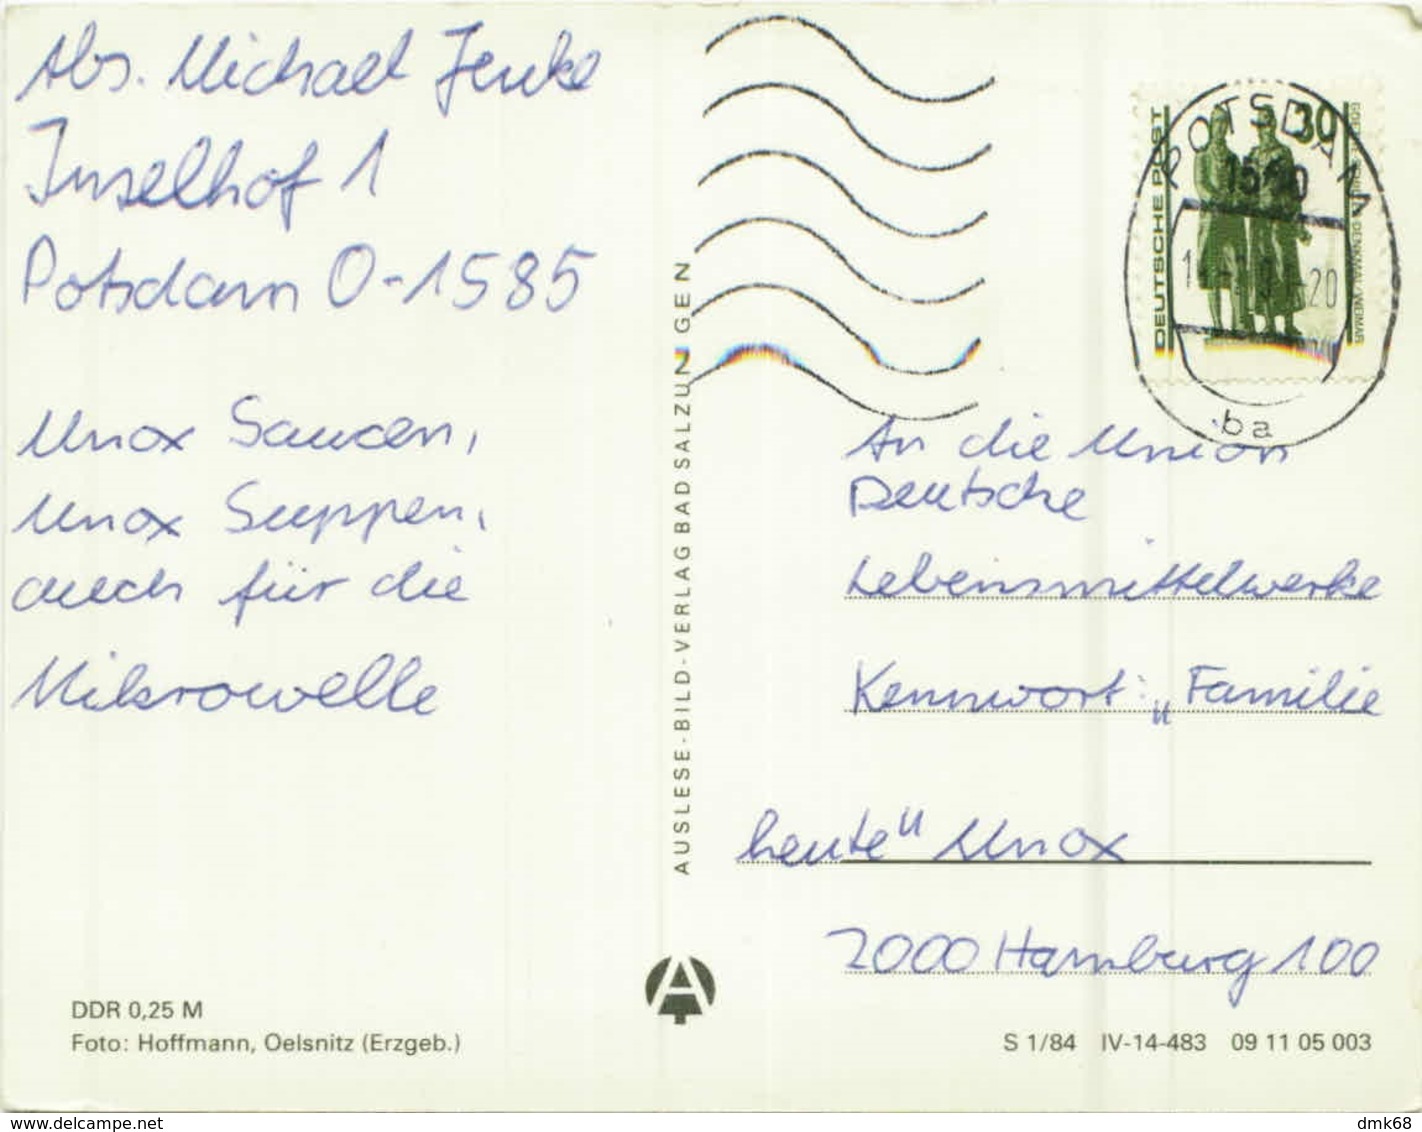 Abs. Michael Jenke
Inselhof 1
Potsdam O-1585
Unox Saucen,
Unox Suppen,
auch für die
Mikrowelle
DDR 0,25 M
Foto: Hoffmann, Oelsnitz (Erzgeb.)
AUSLESE-BILD-VERLAG BAD SALZUNGEN
A
DEUTSCHE POST
30
DENKMAL
WEIMAR
POTSDAM
20
ba
An die Union
Deutsche
Lebensmittelwerke
Kennwort: „Familie
heute" Unox
2000 Hamburg 100
S 1/84 IV-14-483 09 11 05 003
www.delcampe.net
dmk68